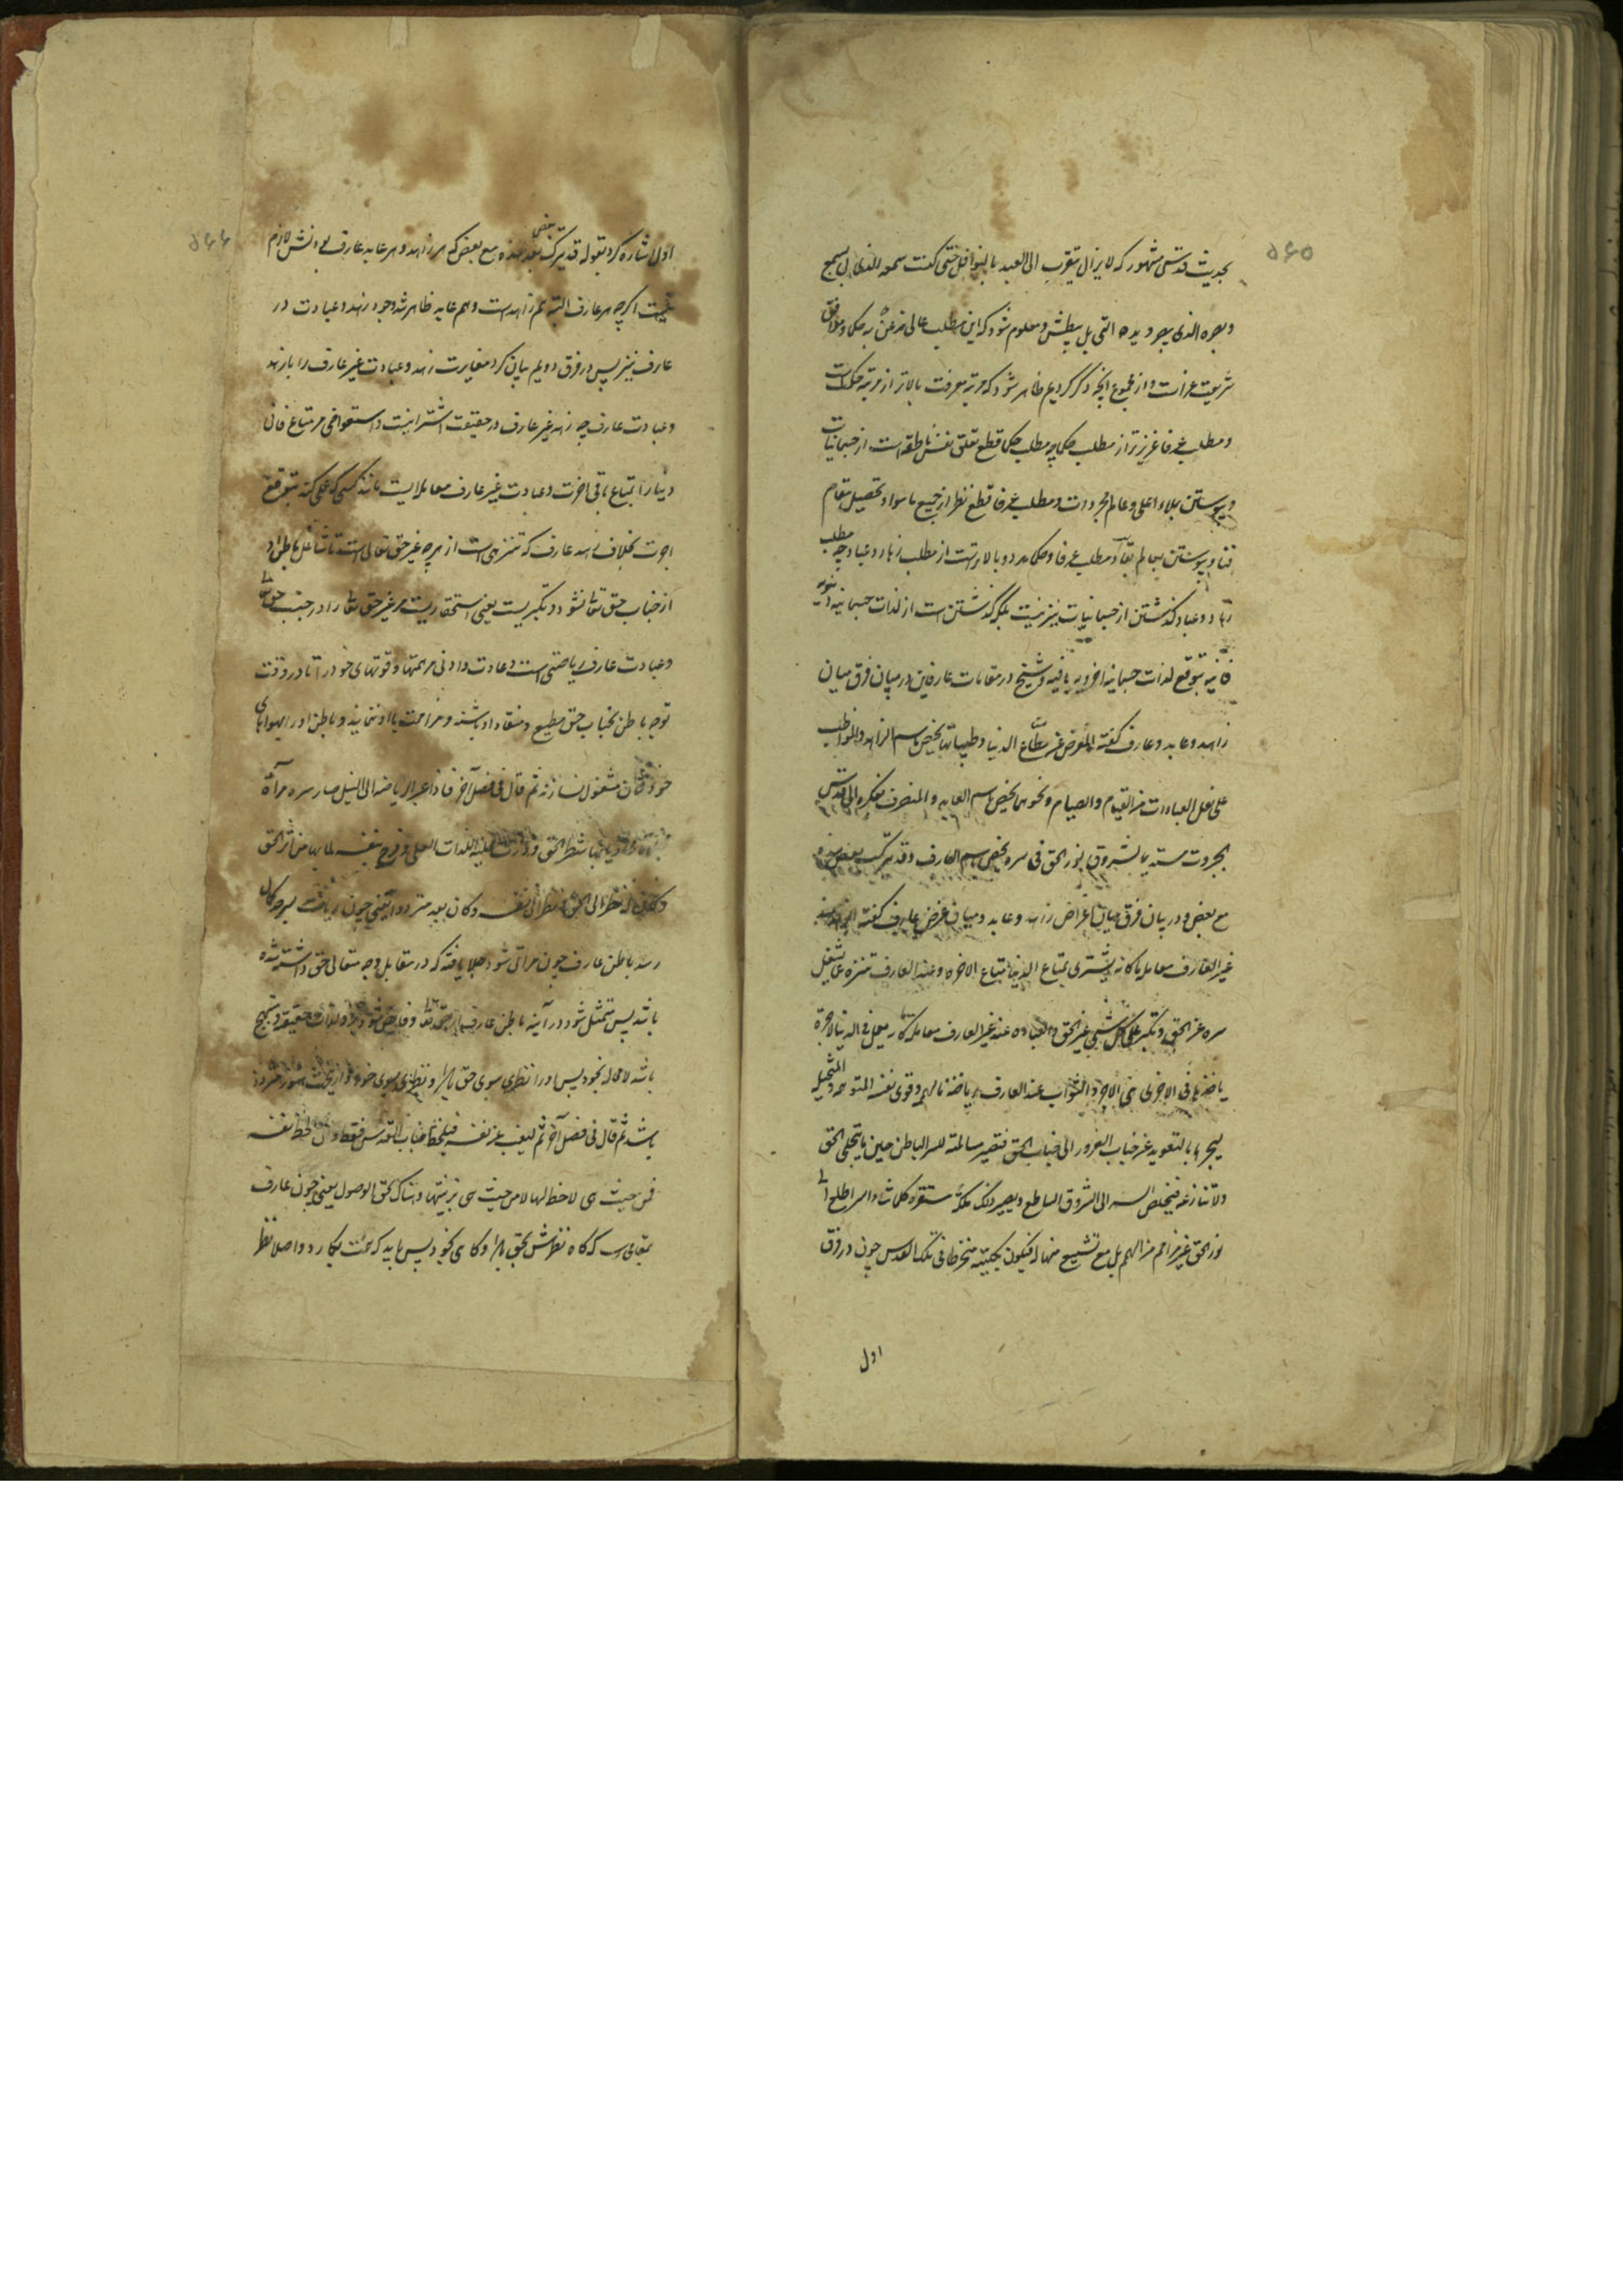 ۵۶۵
بحدیث قدسی مشهور که لا یزال یتقرب الی العبد بالنوافل حتی کنت سمعه الذی بی یسمع
و بصره الذی یبصر و یده التی بی یبطش و معلوم شود که این مطلب عالی
شریعت غراست و از مجموع آنچه ذکر کردیم ظاهر شود که مرتبه معرفت بالاتر از مرتبه حکمت است
و مطلب عرفا عزیزتر از مطلب حکما چه مطلب حکما قطع تعلق نفس ناطقه است از جسمانیات
و پیوستن بملاء اعلی و عالم مجردات و مطلب عرفا قطع نظر از جمیع ما سوا و تحصیل مقام
فنا و پیوستن بعالم بقا و مطلب عرفا و حکما هر دو بالاترست از مطلب زهاد و عباد چه مطلب
زهاد و عباد گذشتن از جسمانیات نیز نیست بلکه گذشتن است از لذات جسمانیه دنیویه
فانیه بتوقع لذات جسمانیه اخرویه باقیه و شیخ در مقامات عارفین در بیان فرق میان
زاهد و عابد و عارف گفته المعرض عن متاع الدنیا و طیباتها یخص باسم الزاهد و المواظب
علی نفل العبادات من القیام و الصیام و نحوهما یخص باسم العابد و المنصرف بفکره الی قدس
الجبروت مستدیما لشروق نور الحق فی سره یخص باسم العارف و قد یترکب بعض هذه
مع بعض و در بیان فرق میان اغراض زاهد و عابد و میان غرض عارف گفته الزهد عند
غیر العارف معاملة ما کانه یشتری بمتاع الدنیا متاع الآخره و عند العارف تنزه عما یشغل
سره عن الحق و تکبر علی کل شیء غیر الحق و العباده عند غیر العارف معاملة ما کانه یعمل فی الدنیا لاجرة
یاخذها فی الآخرة هی الاجر و الثواب و عند العارف ریاضة ما لهممه و قوی نفسه المتوهمه و المتخیله
لیجرها بالتعوید عن جناب الغرور الی جناب الحق فتصیر مسالمة للسر الباطن حین ما یتجلی الحق
و لا تنازعه فیخلص السر الی الشروق الساطع و یصیر ذلک ملکة مستقرة کلما شاء السر اطلع الی
نور الحق غیر مزاحم من الهمم بل مع تشییع منها له فیکون بکلیته منخرطا فی تلک القدس چون در فرق
اول
۵۶۶
اول اشاره کرد بقوله قد یترکب بعض هذه مع بعض که هر زاهد و هر عابد عارف بودنش لازم
نیست اگرچه هر عارف البته هم زاهدست و هم عابد ظاهر شد وجود زهد و عبادت در
عارف نیز پس در فرق دویم بیان کرد مغایرت زهد و عبادت غیر عارف را با زهد
و عبادت عارف چه زهد غیر عارف در حقیقت اشتراییست و استعواضی مر متاع فانی
دنیا را بمتاع باقی آخرت و عبادت غیر عارف معاملاییست مانند کسی که عملی کند بتوقع
اجرت بخلاف زهد عارف که تنزهی است از هر چه غیر حق تعالی است تا شاغل باطن او
از جناب حق تعالی نشود و تکبریست یعنی استحقاریست مر غیر حق تعالی را در جنب حق تعالی
و عبادت عارف ریاضتی است و عادت دادنی مر همتها و قوتهای خود را تا در وقت
توجه باطن بجناب حق مطیع و منقاد او باشند و مزاحمت با او ننمایند و باطن او را بهواهای
خودشان مشغول نسازند ثم قال فی فصل آخر فاذا عبر الریاضة الی النیل صار سره مرآة
مجلوة محاذیا بها شطر الحق و درت علیه اللذات العلی و فرح بنفسه لما بها من اثر الحق
و کان له نظر الی الحق و نظر الی نفسه و کان بعد مترددا یعنی چون ریاضت بسر حد کمال
رسد باطن عارف چون مرآتی شود جلا یافته که در مقابل وجه متعالی حق داشته شده
باشد پس متمثل شود در آینه باطن عارف جمال حق تعالی و فایض شود برو لذات حقیقیه و مبتهج
باشد لا محاله بخود پس او را نظری بسوی حق باشد و نظری بسوی خود و ازین جهت هنوز متردد
باشد ثم قال فی فصل آخر ثم لیغیب عن نفسه فیلحظ جناب القدس فقط و ان لحظ نفسه
فمن حیث هی لاحظة لها لا من حیث هی بزینتها و هناک یحق الوصول یعنی چون عارف
بمقامی رسد که گاه نظرش بحق باشد و گاهی بخود پس باید که همت بگمارد و اصلا نظر